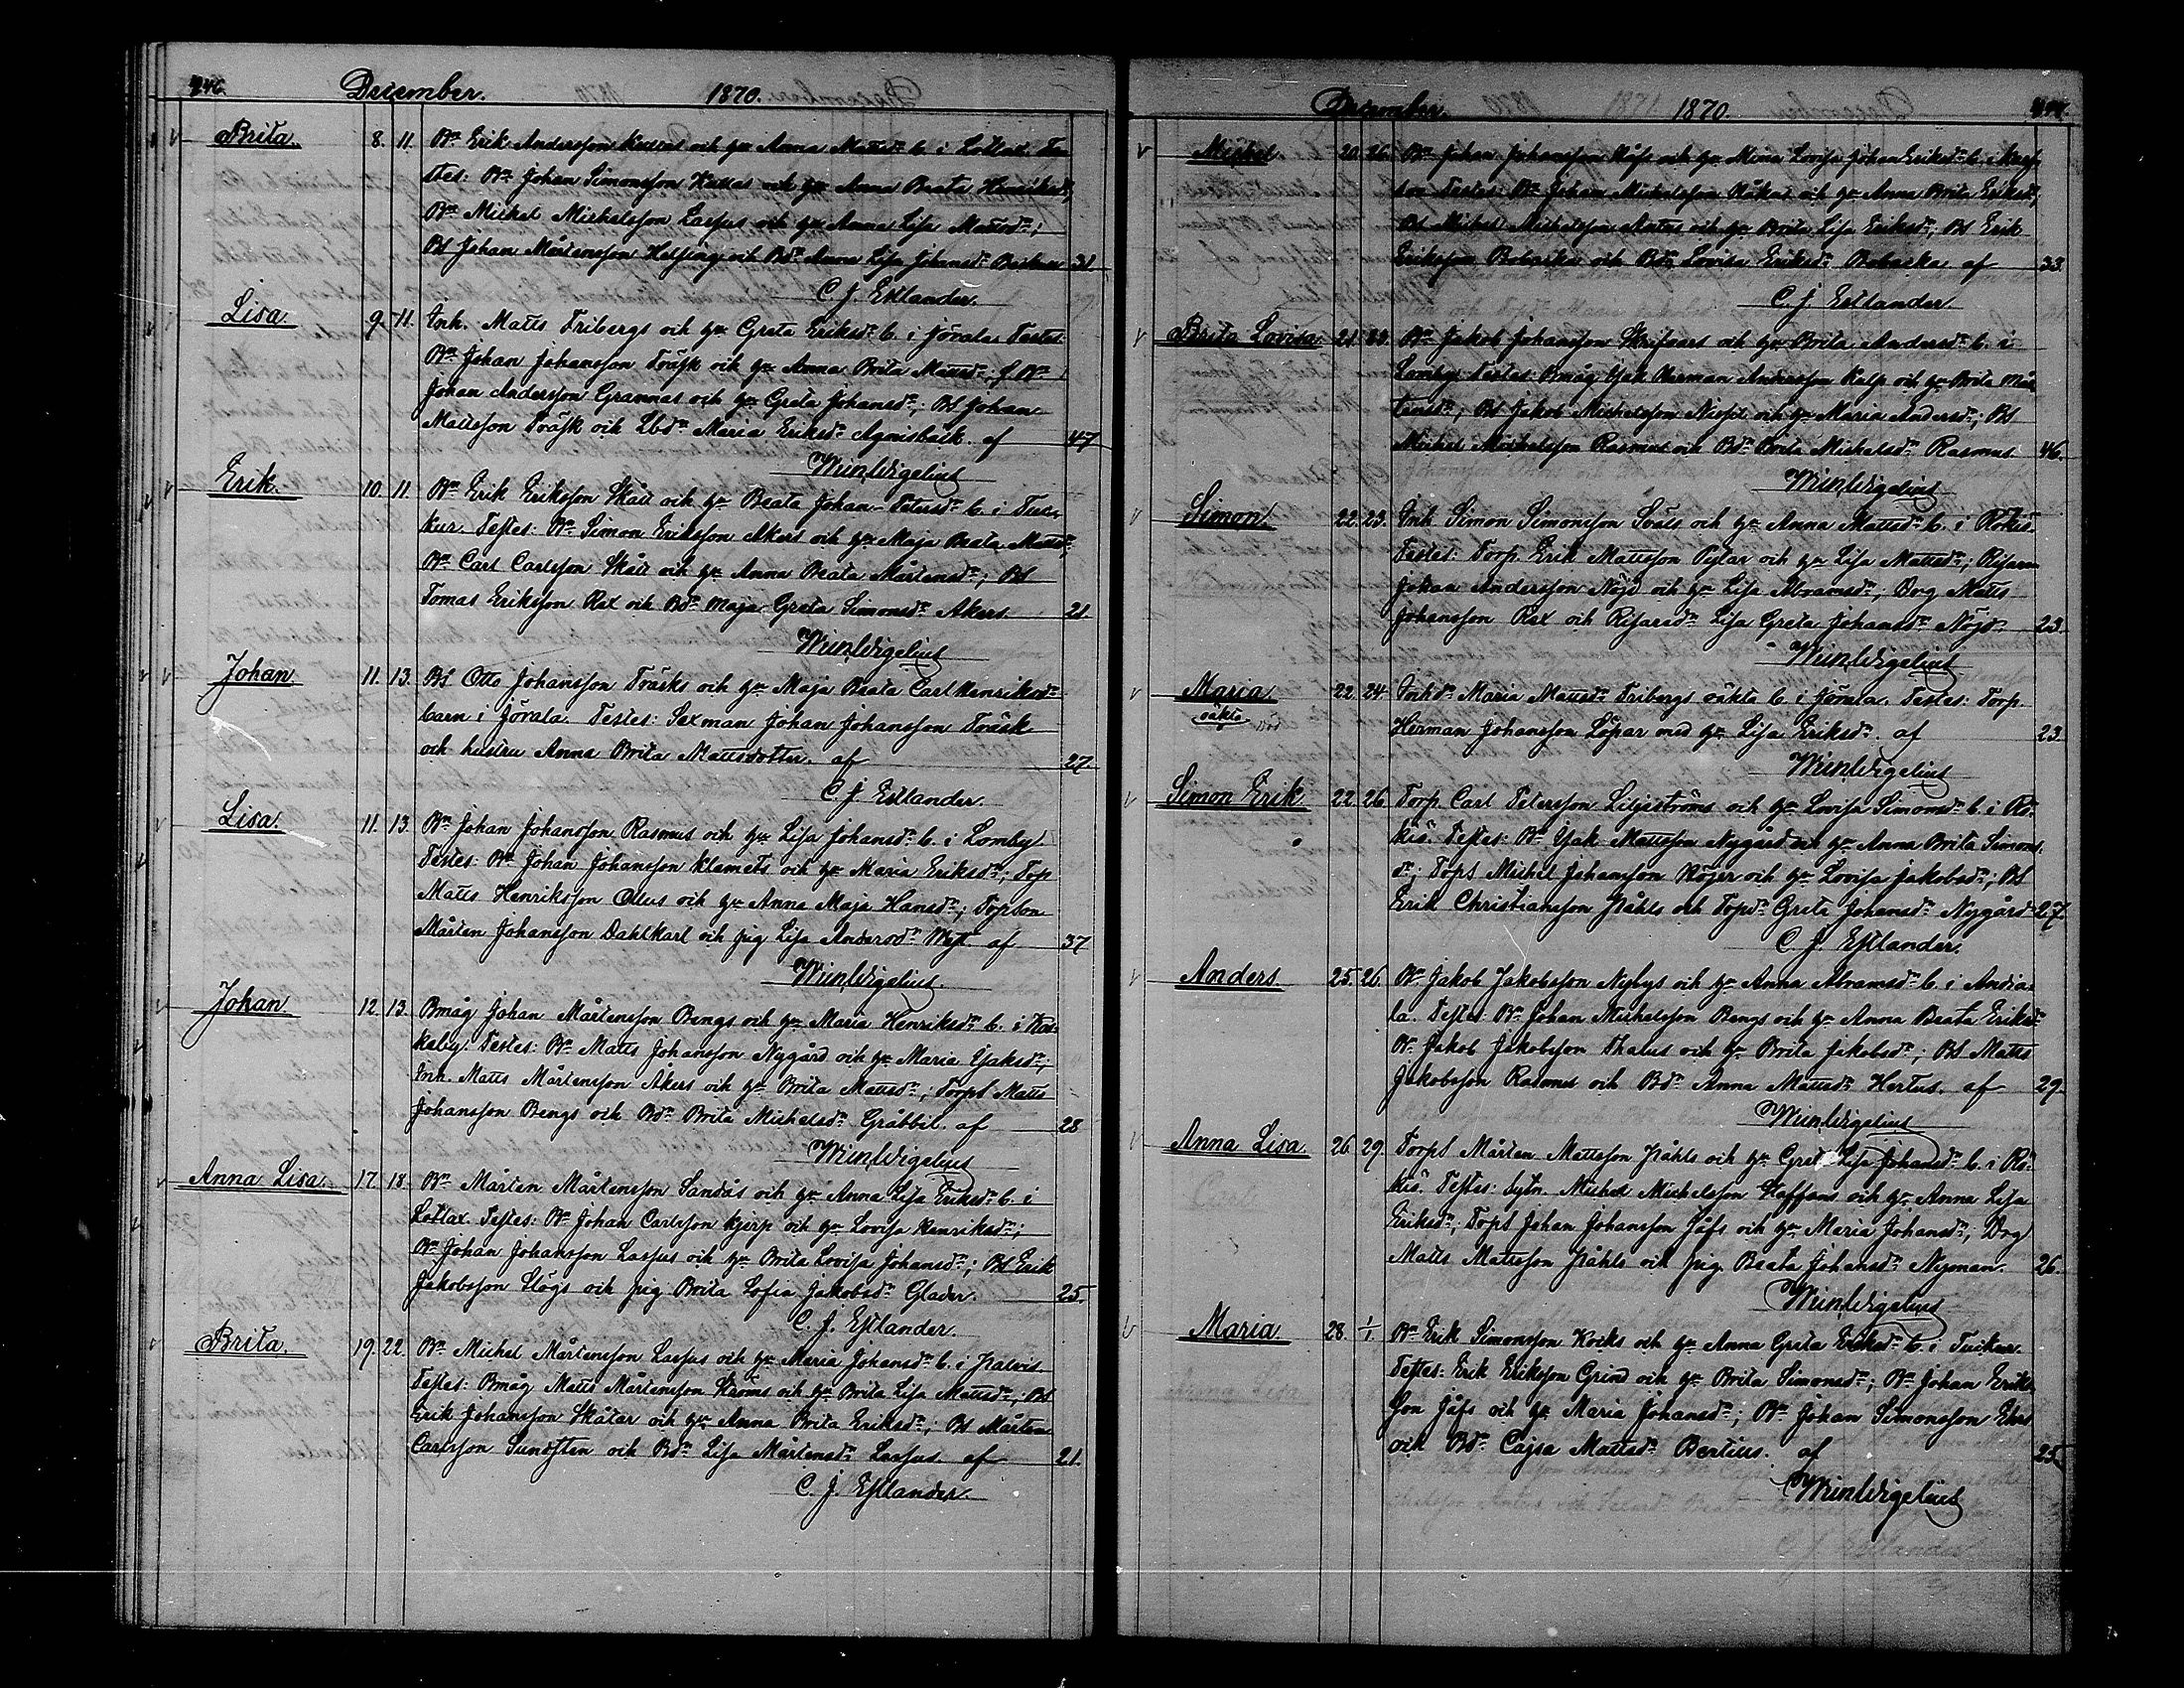 446. December. 1870.
Brita. 8. 11. Bn Erik Andersson Kussas och hu Anna Mattsdr b. i Lolax. Te
stes: Bn Johan Simonsson Kussas och hu Anna Beata Henriksdr;
Bn Mickel Michelsson Lassus och hu Anna Lisa Mattsdr;
Bs Johan Mårtensson Helsing och Bdr Anna Lisa Johansdr 31
C. J. Estlander.
Lisa. 9. 11. Inh. Matts Fribergs och hu Greta Eriksdr b. i Jövala. Testes:
Bn Johan Johansson Träsk och hu Anna Brita Mattsdr, f. Bn
Johan Andersson Grannas och hu Greta Johansdr; Bs Johan
Mattsson Träsk och Lbdr Maria Eriksdr Agnisbäck. af 47
Wigelius
Erik. 10. 11. Bn Erik Eriksson Skått och hu Beata Johan-Petersdr b. i Tuc,
kur. Testes: Bn Simon Eriksson Akers och hu Maja Beata Mattsdr,
Bn Carl Carlsson Skått och hu Anna Beata Mårtensdr; Bs
Tomas Eriksson Rex och Bdr Maja Greta Simonsdr Akers. 21.
Wigelius
Johan. 11. 13. Bs Otto Johansson Träsks och hu Maja Beata Carl Henriksdr
barn i Jövala. Testes: Sexman Johan Johansson Träsk
och hustru Anna Brita Mattsdotter. af 27
C. J. Estlander.
Lisa. 11. 13. Bn Johan Johansson Rasmus och hu Lisa Johansdr b. i Lomby.
Testes: Bn Johan Johansson Klemets och hu Maria Eriksdr; Torp
Matts Henriksson Ollus och hu Anna Maja Hansdr; Torpson
Mårten Johansson Dahlkarl och pig Lisa Andersdr West af 37
Wigelius.
Johan. 12. 13. Bmåg Johan Mårtensson Bengs och hu Maria Henriksdr b. i Kar-
keby. Testes: Bn Matts Johansson Nygård och hu Maria Isaksdr;
Inh. Matts Mårtensson Åkers och hu Brita Mattsdr; Torps Matts
Johansson Bengs och Bdr Brita Michelsdr Gråbbil. af 28
Wigelius
Anna Lisa. 17. 18. Bn Mårten Mårtensson Sandås och hu Anna Lisa Eriksdr b. i
Lollax. Testes: Bn Johan Carlsson Kjerp och hu Lovisa Henriksdr;
Bn Johan Johansson Lassus och hu Brita Lovisa Johansdr; Bs Erik
Jakobsson Slögs och pig Brita Sofia Jakobsdr Glader. 25.
C. J. Estlander.
Brita. 19. 22. Bn Michel Mårtensson Lassus och hu Maria Johansdr b. i
Testes: Bmåg Matts Mårtensson Ströms och hu Brita Lisa Mattsdr; Bs
Erik Johansson Skåtar och hu Anna Brita Eriksdr; Bs Mårten
Carlsson Sundsten och Bdr Lisa Mårtensdr Lassus. af 21.
C. J. Estlander.
December. 1870.
Mickel. 20. 26. Bn Johan Johansson och hu Mina Lovisa Johan Eriksdr b. i
Testes: Bn Johan Michelsson och hu Anna Brita Eriksdr;
Bs Mickel Michelsson och hu Brita Lisa Eriksdr; Bs Erik
Eriksson Bobacka och Bdr Lovisa Eriksdr Bobacka af 33.
C. J. Estlander.
Brita Lovisa. 21. Bn Jakob Johansson Skrifvars och hu Brita Andersdr b. i
Lomby. Testes: Bmåg Isak Herman Andersson Kulp och hu Brita Mår
tensdr; Bs Jakob Michelsson och hu Maria Andersdr; Bs
Mickel Mickelsson Rasmus och Bdr Brita Mickelsdr Rasmus. 46.
Wigelius
Simon. 22. 23. Inh Simon Simonsson och hu Anna Mattsdr b. i Rökiö.
Testes: Torp. Erik Mattsson och hu Lisa Mattsdr;
Johan Andersson Nöjd och hu Lisa Abramsdr; Drg Matts
Johansson Rex och Lisa Greta Johansdr Nöjd. 23.
Wigelius
Maria. 22. 24. Inhdr Maria Mattsdr Fribergs oäkta b. i Jövala. Testes: Torp.
oäkta
Herman Johansson Löpar med hu Lisa Eriksdr. af 23
Wigelius
Simon Erik 22. 26. Torp. Carl Petersson Liljeströms och hu Lovisa Simonsdr b. i Rö-
kiö. Testes: Bn Isak Mattsson Nygård och hu Anna Brita Simons-
dr; Torps Michel Johansson Röjer och hu Lovisa Jakobsdr; Bs
Erik Christiansson Påhls och Torpdr Greta Johansdr Nygård 27.
C. J. Estlander.
Anders. 25. 26. Bn Jakob Jakobsson Nybys och hu Anna Abramsdr b. i Andia-
la. Testes: Bn Johan Michelsson Bengs och hu Anna Beata Eriksdr
Bn Jakob Jakobsson Thalus och hu Brita Jakobsdr; Bs Matts
Jakobsson Rasmus och Bdr Anna Mattsdr Hertus. af 29
Wigelius
Anna Lisa. 26. 29. Torps Mårten Mattsson Påhls och hu Greta Lisa Johansdr b. i Rö-
kiö. Testes: Sytn. Michel Michelsson Staffans och hu Anna Lisa
Eriksdr; Torps Johan Johansson Jåfs och hu Maria Johansdr; Drg
Matts Mattsson Påhls och pig. Beata Johansdr Nyman. 26.
Wigelius
Maria. 28. 1/1. Bn Erik Simonsson Kocks och hu Anna Greta Eriksdr b. i Tuckur.
Testes: Erik Eriksson Grind och hu Brita Simonsdr; Bn Johan Eriks-
son Jåfs och hu Maria Johansdr; Bn Johan Simonsson Ehrs
och Bdr Cajsa Mattsdr Bertius. af 25
Wigelius